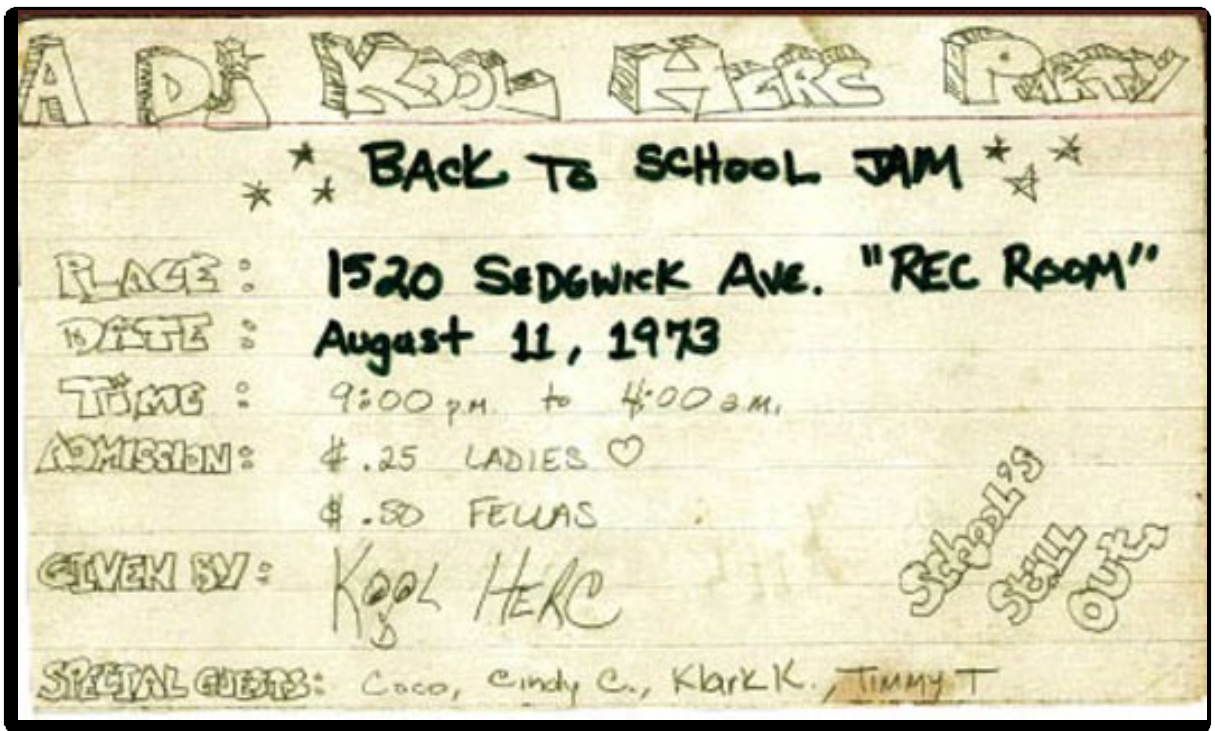 A DJ KOOL HERC PARTY
BACK TO SCHOOL JAM
PLACE: 1520 SEDGWICK AVE. "REC ROOM"
DATE: August 11, 1973
TIME: 9:00 p.m. to 4:00 a.m.
ADMISSION: $.25 LADIES ♡
$.50 FELLAS
GIVEN BY: KOOL HERC
SPECIAL GUESTS: Coco, Cindy C., Klark K., TIMMY T
SCHOOL'S
STILL
OUT.